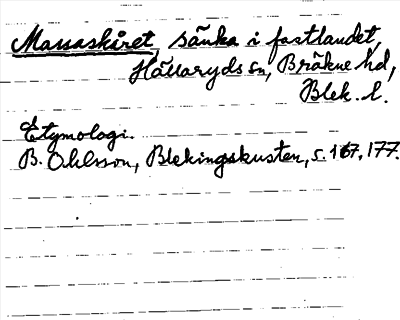 Massaskäret, sänka i fastlandet,
Hällaryds sn, Bräkne hd,
Blek. l.
Etymologi.
B. Ohlsson, Blekingskusten, s. 167, 177.